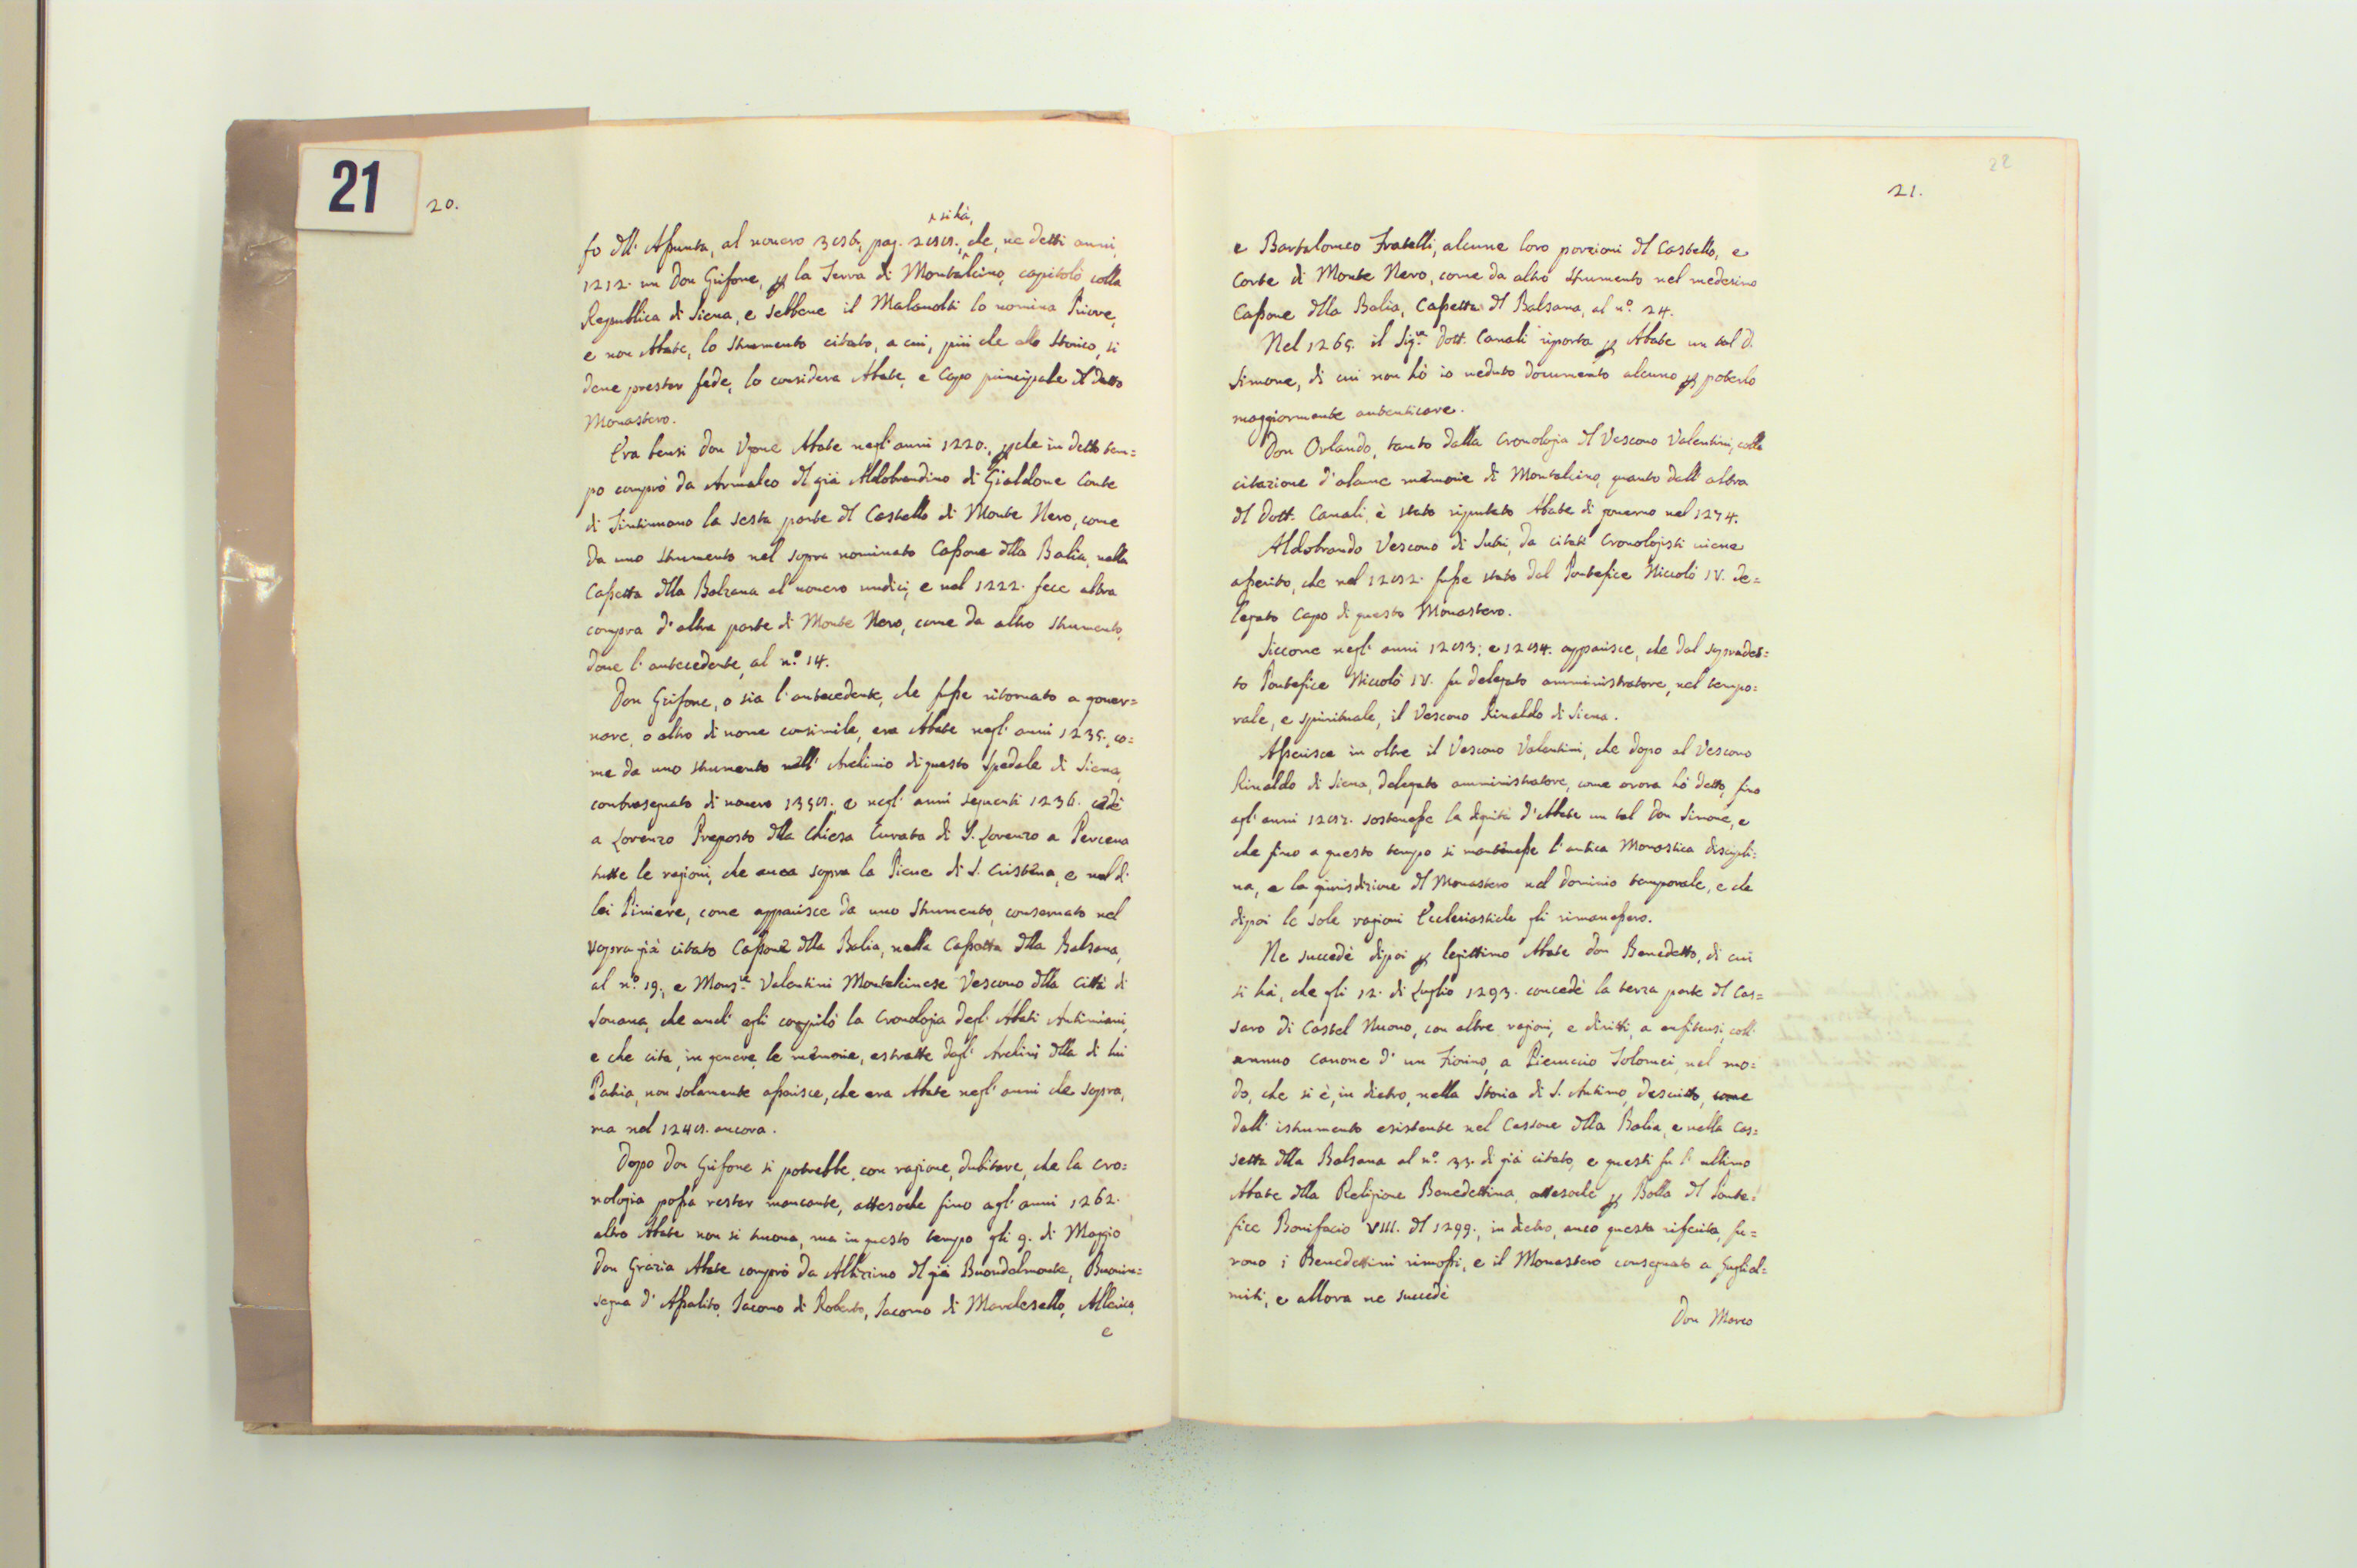 21
20.
si hà,
so dll' Assunta, al novero 3096, pag. 2909., che, ne detti anni,
1212. un Don Grifone, p la Terra di Montalcino, capitolò colla
Republica di Siena, e sebbene il Malavolti lo nomina Priore,
e non Abate, lo strumento citato, a cui, più che allo Storico, si
deve prestar fede, lo considera Abate, e Capo principale dl detto
Monastero.
Era bensi Don Vgone Abate negl' anni 1220., pche in detto tem=
po comprò da Arnaleo dl già Aldobrandino di Gialdone Conte
di Sintinnano la sesta parte dl Castello di Monte Nero, come
da uno strumento nel sopra nominato Cassone dlla Balia, nella
Cassetta dlla Balzana al novero undici, e nel 1222. fece altra
compra d' altra parte di Monte Nero, come da altro strumento,
dove l' antecedente, al n.º 14.
Don Grifone, o sia l' antecedente, che fusse ritornato a gover=
nare, o altro di nome consimile, era Abate negl' anni 1235., co=
me da uno strumento nell' Archivio di questo Spedale di Siena,
contrasegnato di novero 1359., e negl' anni seguenti 1236. cedè
a Lorenzo Preposto dlla Chiesa Curata di S. Lorenzo a Percena
tutte le ragioni, che avea sopra la Pieve di S. Cristina, e nel di
lei Piviere, come apparisce da uno Strumento, conservato nel
sopra già citato Cassone dlla Balia, nella Cassetta dlla Balzana,
al n.º 19., e Mons.re Valentini Montalcinese Vescovo dlla Città di
Sovana, che anch' egli compilò la Cronologia degl' Abati Antimiani,
e che cita, in genere, le memorie, estratte dagl' Archivi dlla di lui
Patria, non solamente asserisce, che era Abate negl' anni che sopra,
ma nel 1249. ancora.
Dopo Don Grifone si potrebbe, con ragione, dubitare, che la Cro=
nologia possa restar mancante, attesoche fino agl' anni 1262.
altro Abate non si truova, ma in questo tempo gli 9. di Maggio
Don Grazia Abate comprò da Albizzino dl già Buondelmonte, Buonin=
segna d' Assalito, Iacomo di Roberto, Iacomo di Maroleso
e
22
21.
e Bartolomeo Fratelli, alcune loro porzioni dl Castello, e
Corte di Monte Nero, come da altro strumento nel medesimo
Cassone dlla Balia, Cassetta dl Balzana, al n.º 24.
Nel 1265. il Sig.re Dott. Canali riporta p Abate un tal D.
Simone, di cui non hò io veduto documento alcuno p poterlo
maggiormente autenticare.
Don Orlando, tanto dalla Cronologia dl Vescovo Valentini, colla
citazione d' alcune memorie di Montalcino, quanto dall' altra
dl Dott. Canali, è stato riputato Abate di governo nel 1274.
Aldobrando Vescovo di Sutri, da citati Cronologisti viene
asserito, che nel 1292. fusse stato dal Pontefice Niccolò IV. de=
legato Capo di questo Monastero.
Siccome negl' anni 1293; e 1294. apparisce, che dal sopradet=
to Pontefice Niccolò IV. fu delegato amministratore, nel tempo=
rale, e spirituale, il Vescovo Rinaldo di Siena.
Asserisce in oltre il Vescovo Valentini, che dopo al Vescovo
Rinaldo di Siena, delegato amministratore, come orora hò detto, fino
agl' anni 1297. sostenesse la dignità d' Abate un tal Don Simone, e
che fino a questo tempo si mantenesse l' antica Monastica discipli=
na, e la giurisdizione dl Monastero nel dominio temporale, e che
dipoi le sole ragioni Ecclesiastiche gli rimanessero.
Ne succedè dipoi p legittimo Abate Don Benedetto, di cui
si hà, che gli 12. di Luglio 1293. concedè la terza parte dl Cas=
saro di Castel Nuovo, con altre ragioni, e diritti, a enfiteusi, coll'
annuo canone d' un Fiorino, a Pieruccio Tolomei, nel mo=
do, che si è, in dietro, nella Storia di S. Antimo, descritto, come
dall' istrumento esistente nel Cassone dlla Balia, e nella Cas=
setta dlla Balzana al n.º 33. di già citato, e questi fu l' ultimo
Abate dlla Religione Benedettina, attesochè p Bolla dl Ponte=
fice Bonifacio VIII. dl 1299., in dietro, anco questa riferita, fu=
rono i Benedettini rimossi, e il Monastero consegnato a Guglial=
miti, e allora ne succedè
Don Marco